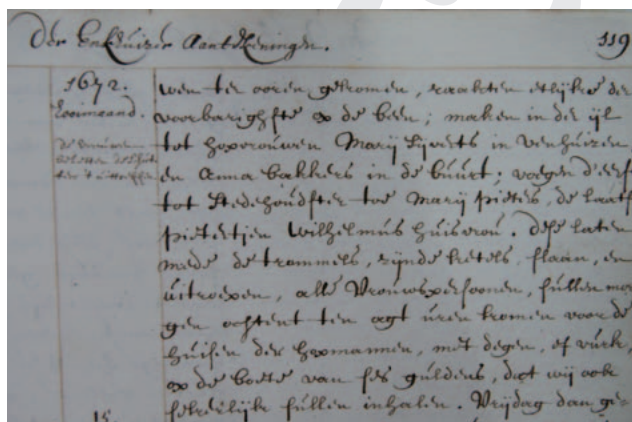 Der Enkhuizer Aantekeningen.
119
1672.
Hooimaand.
de vrouwen
beletten de schut
ters 't uittrekken
wen ter ooren gekomen, raakten etlijke der
voorbarighste op de been; maken in der ijl
tot hopvrouwen Marij Sijverts in Venhuizen,
en Anna bakkers in de buurt; voegen d'eerst
tot Stedehoudster toe Marij pieters, de laatst
pietertjen Wilhelmus huisvrou. Dese laten
mede de trommels, zijnde ketels, slaan, en
uitroepen, alle Vrouwspersoonen, sullen mor
gen ochtent ten agt uren komen voor de
huisen der hopmannen, met degen, of vurk,
op de boete van ses guldens, dat wij ook
sekerlijk sullen inhalen. Vrijdag dan ge-
15.